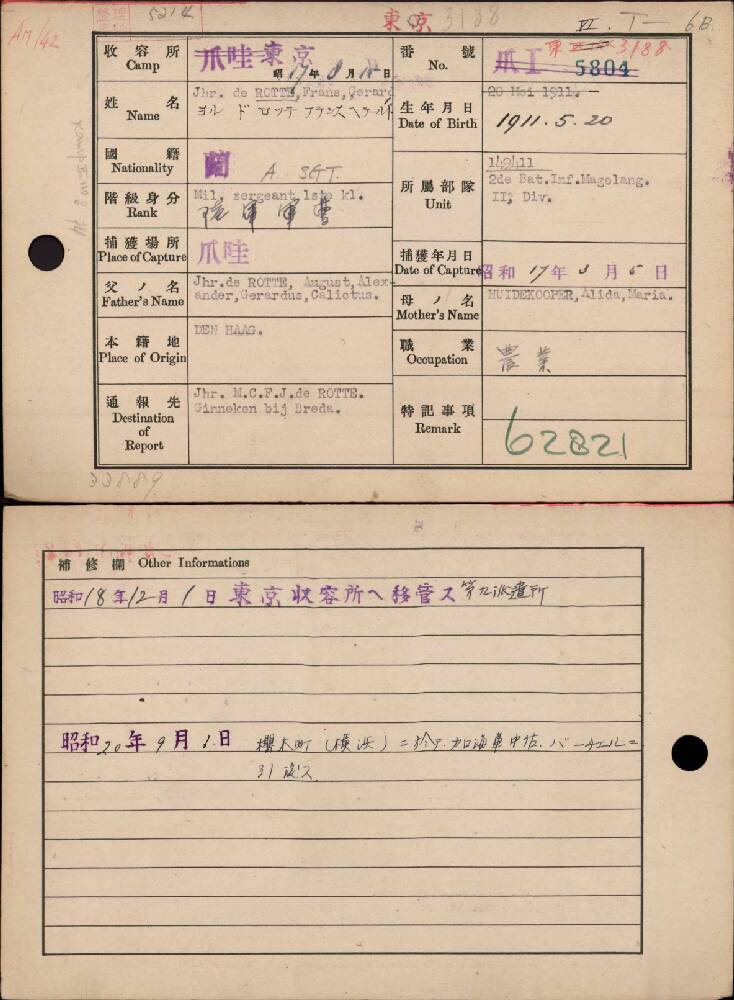 整理 5214 東京 3188 VI. T— 6B.
AM/42
收容所 Camp 爪哇 東京
昭 17年 8月 15日
番號 No. 爪 I 5804 3188
姓名 Name Jhr. de ROTTE, Frans, Gerard
ヨル ド ロッテ フランス ヘラルド
生年月日 Date of Birth 20 Mei 1911.
1911. 5. 20
國籍 Nationality 蘭 A. SGT.
所屬部隊 Unit 149411
2de Bat.Inf.Magelang.
II, Div.
階級身分 Rank Mil. sergeant 1ste kl.
陸軍軍曹
捕獲場所 Place of Capture 爪哇
捕獲年月日 Date of Capture 昭和 17年 3月 5日
父ノ名 Father's Name Jhr.de ROTTE, August,Alex-
ander,Gerardus,Calixtus.
母ノ名 Mother's Name HUIDEKOOPER,Alida,Maria.
本籍地 Place of Origin DEN HAAG.
職業 Occupation 農業
通報先 Destination of Report Jhr. M.C.F.J.de ROTTE.
Ginneken bij Breda.
特記事項 Remark 62821
33889
補修欄 Other Informations
昭和18年12月1日 東京收容所ヘ移管ス 第九派遣所
昭和20年9月1日 櫻木町(横浜)ニ於テ加海軍中佐.バーチエルニ
引渡ス